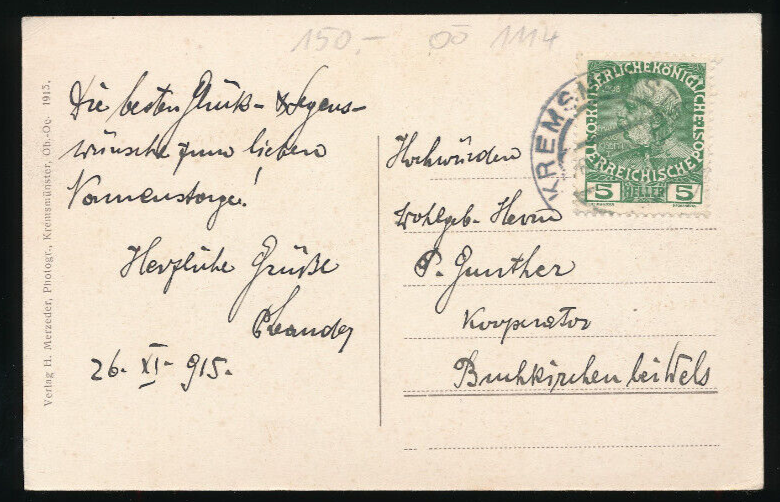 150,- OÖ 1114
Die besten Glück- & Segens-
wünsche zum lieben
Namenstage!
Herzliche Grüße
26. XI. 915.
Hochwürden
Wohlgeb. Herrn
P. Gunther
Kooperator
Buchkirchen bei Wels
Verlag H. Merzeder, Photogr., Kremsmünster, Ob.-Oe. 1913.
KREMSM
KAISERLICHE KÖNIGLICHE
ÖSTERREICHISCHE POST
5 HELLER 5